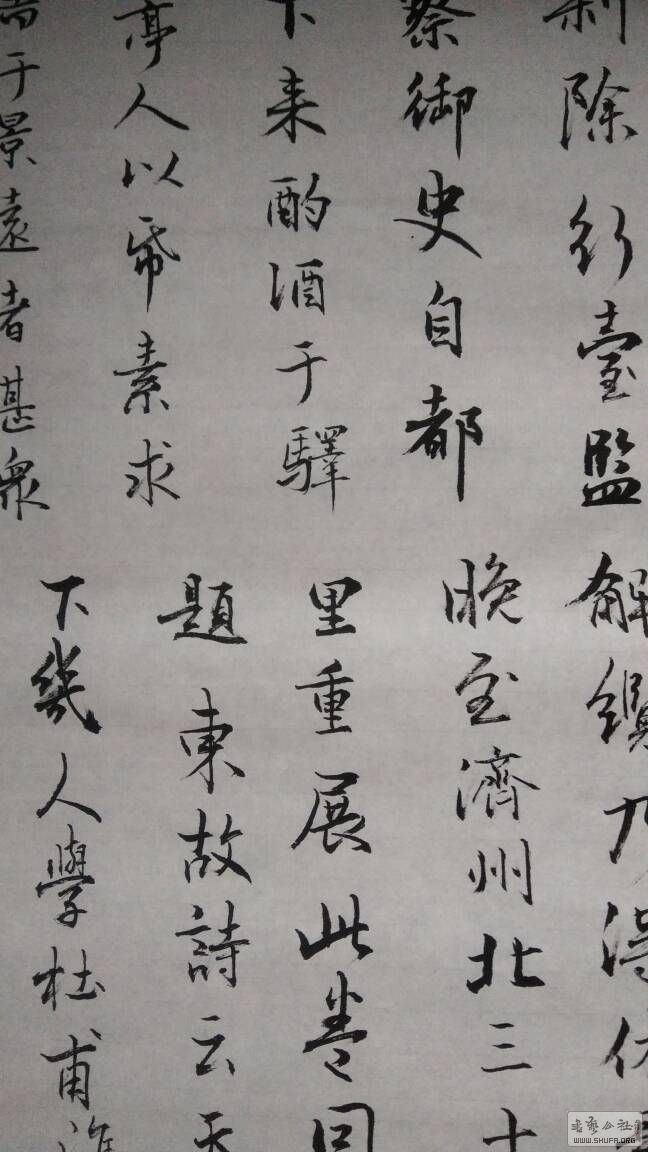 除行臺監
察御史自都
下来酌酒于驛
亭人以帋素求
于景遠者甚衆
解纜乃得休
晚至濟州北三十
里重展此卷
題 東故詩云天
下幾人學杜甫誰
書藝公社
WWW.SHUFA.ORG